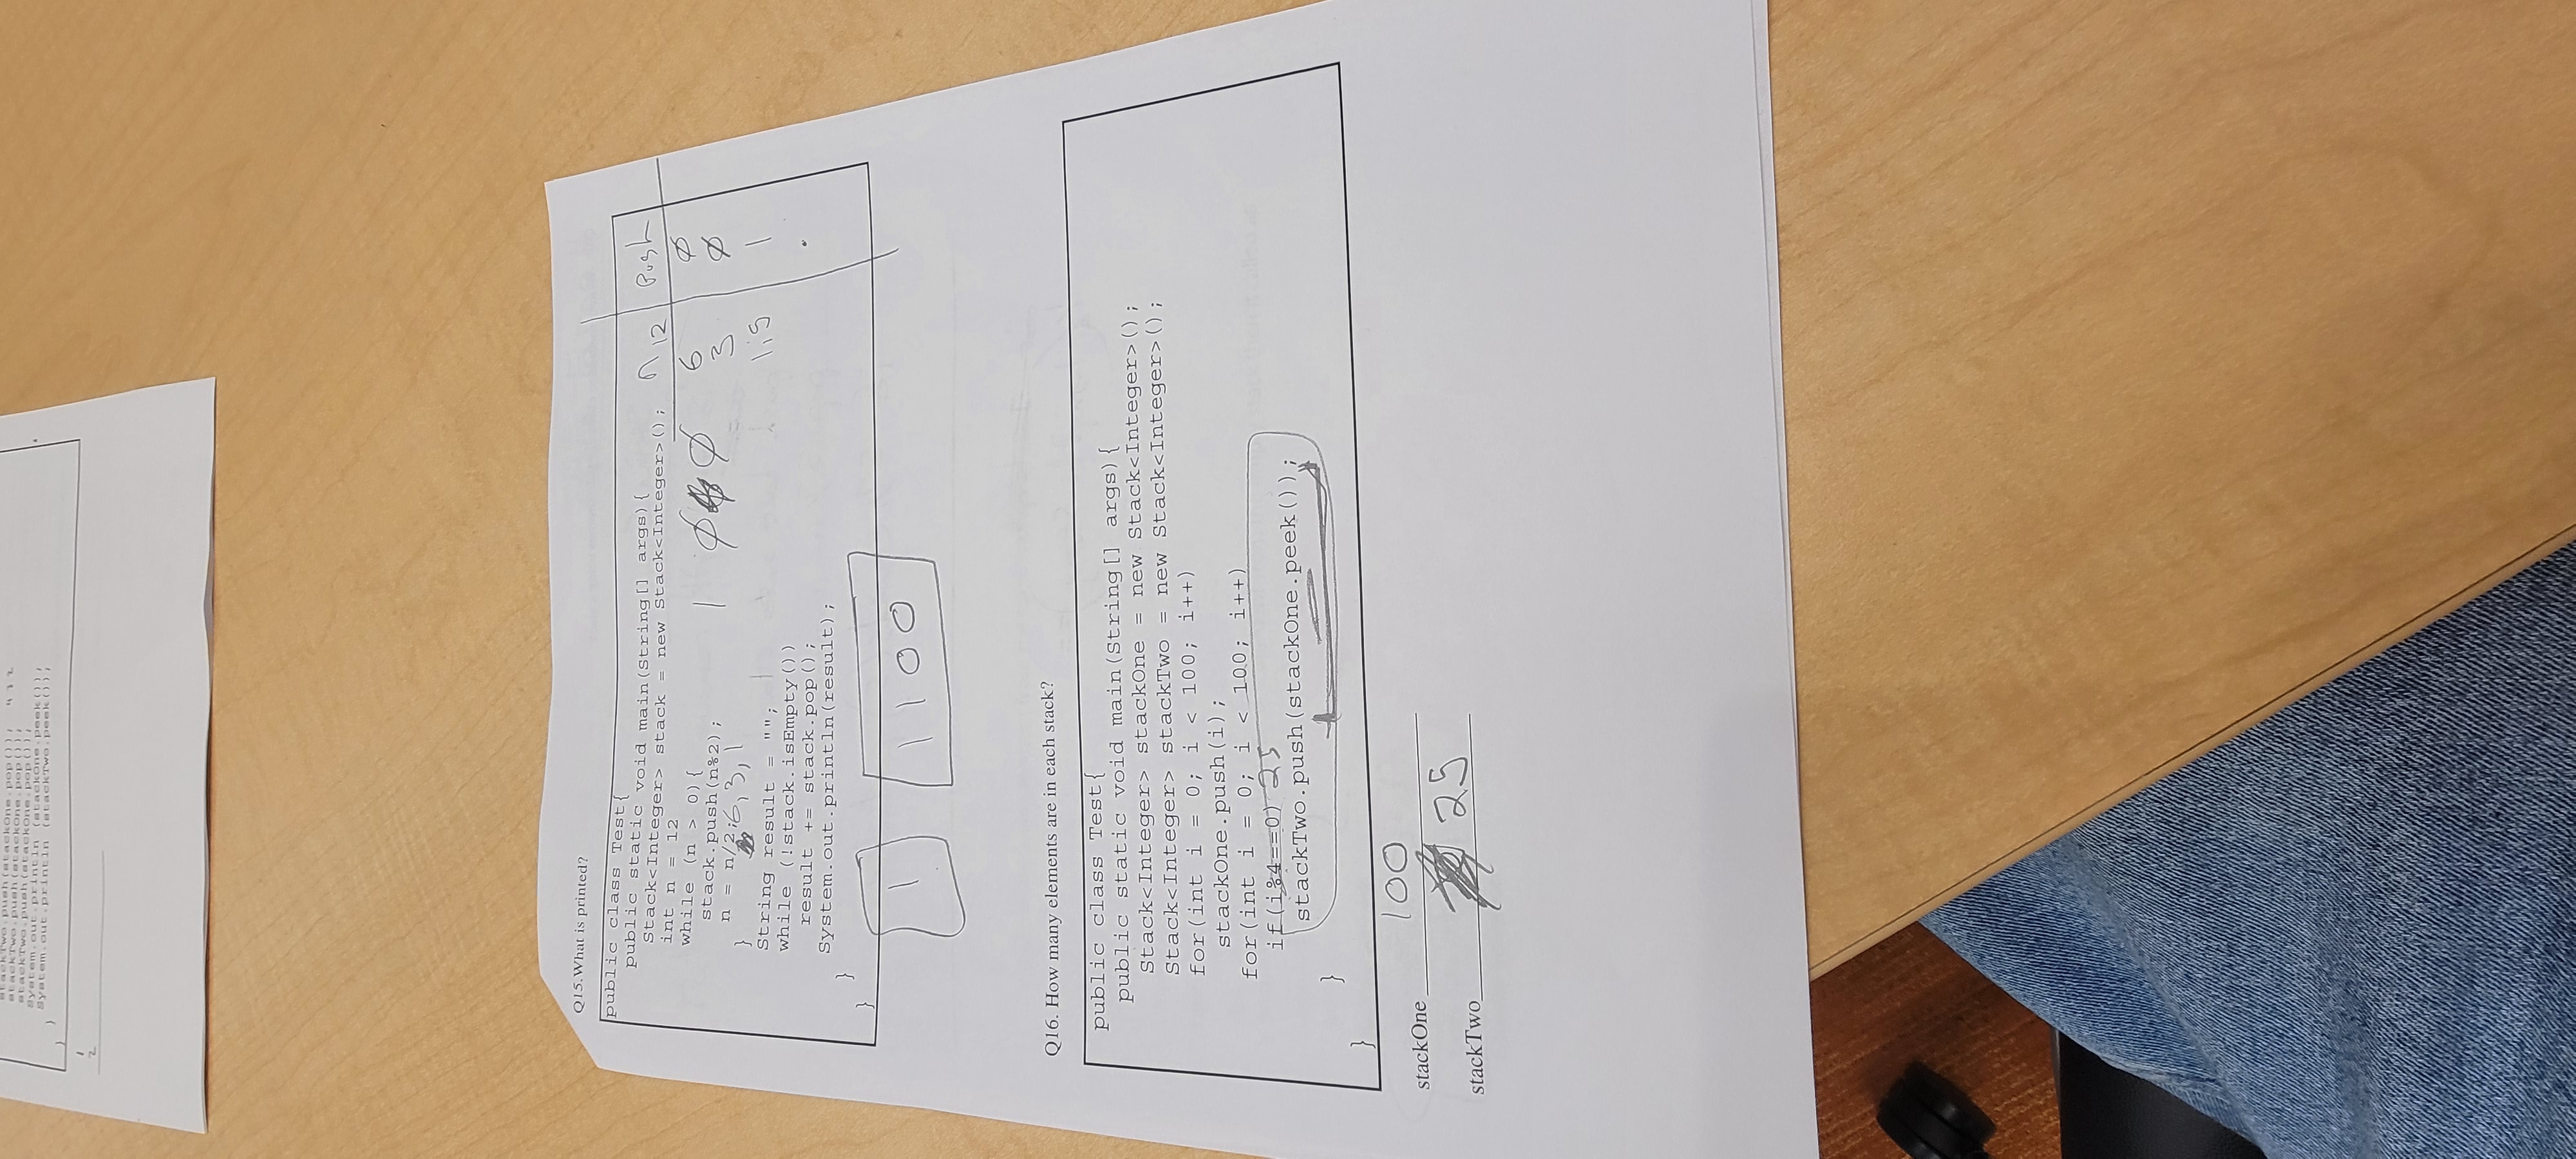 stackTwo.push(stackOne.pop()); 4 3 2
stackTwo.push(stackOne.pop());
stackTwo.push(stackOne.pop());
System.out.println (stackOne.peek());
System.out.println (stackTwo.peek());
}
}
1
2
Q15.What is printed?
public class Test{
public static void main(String[] args){
Stack<Integer> stack = new Stack<Integer>(); n 12 Push
int n = 12
while (n > 0){ 6 0
stack.push(n%2); 1 0 0 3 0
n = n/2; 6, 3, 1
} 1,5 1
String result = "";
while (!stack.isEmpty())
result += stack.pop();
System.out.println(result);
}
}
1 1100
Q16. How many elements are in each stack?
public class Test{
public static void main(String[] args){
Stack<Integer> stackOne = new Stack<Integer>();
Stack<Integer> stackTwo = new Stack<Integer>();
for(int i = 0; i < 100; i++)
stackOne.push(i);
for(int i = 0; i < 100; i++)
if(i%4==0) 25
stackTwo.push(stackOne.peek());
}
}
stackOne 100
stackTwo 25